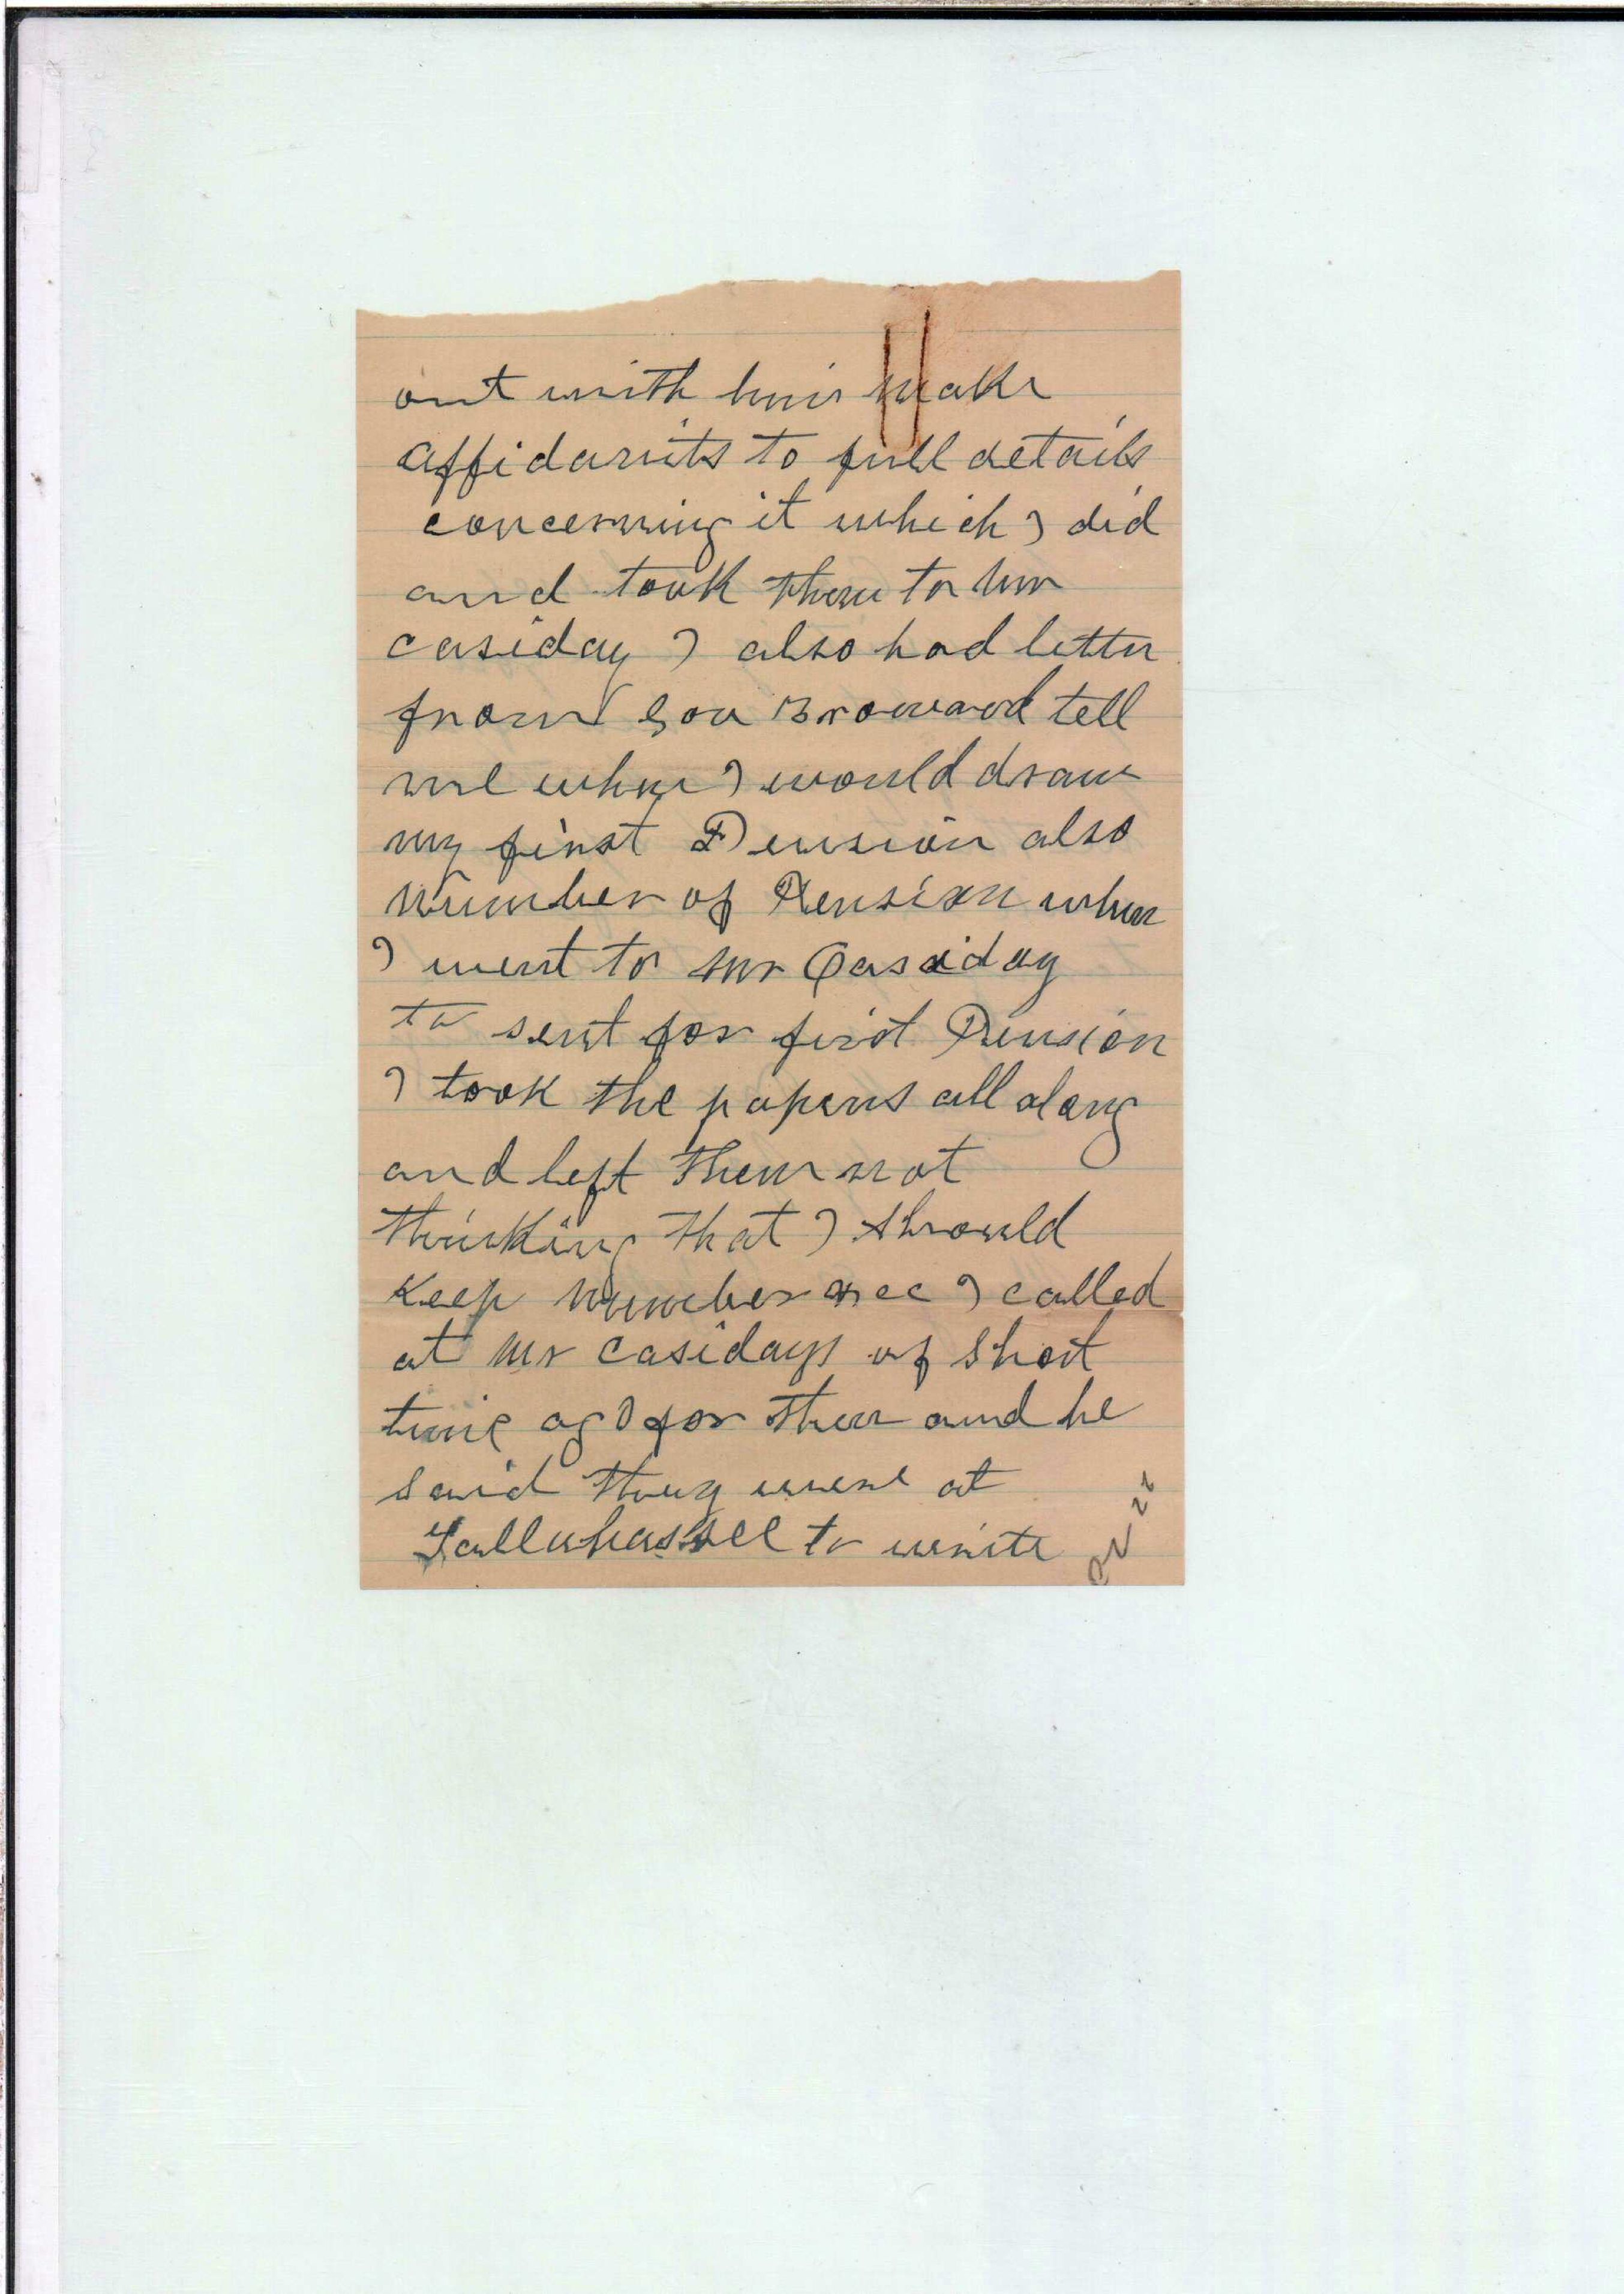 out with him make
affidavits to full details
concerning it which I did
and took them to Mr
casiday I also had letter
from Gov Broward tell
me when I would draw
my first Pension also
Number of Pension when
I went to Mr Casiday
to sent for first Pension
I took the papers all along
and left them not
thinking that I should
Keep Number I called
at Mr Casidays of Short
time ago for them and he
said they were at
Tallahassee to write